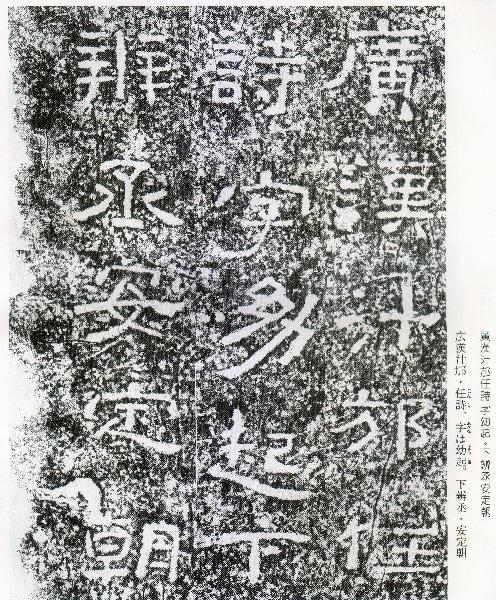 廣漢汁邡任詩字幼起。下辨丞安定朝
広漢汁邡・任詩、字は幼起。下辨丞・安定朝
廣漢汁邡任
詩字幼起下
辨丞安定朝